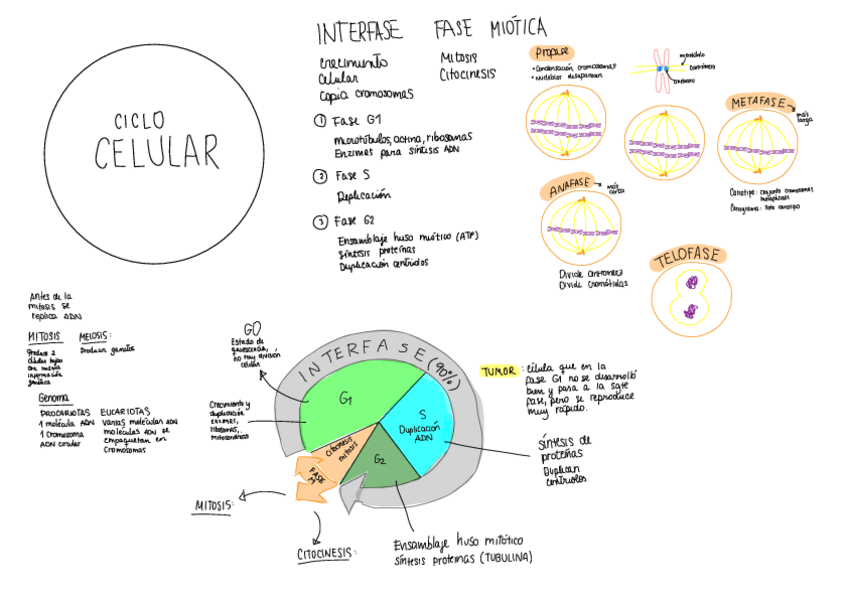 CICLO
CELULAR
INTERFASE FASE MIÓTICA
Crecimiento
Celular
Copia cromosomas
Mitosis
Citocinesis
① Fase G1
Microtúbulos, actina, ribosomas
Enzimes para síntesis ADN
② Fase S
Replicación
③ Fase G2
Ensamblaje huso muótico (ATP)
Síntesis proteínas
Duplicación centriolos
PROFASE
• Condensación cromosomas
• Nucleolos desaparecen
centrómero
METAFASE
más
larga
Cariotipo: Conjunto cromosomas
metafásicos
Cariograma: Foto cariotipo
ANAFASE
más
corta
Divide centromero
Divide cromátidas
TELOFASE
Antes de la
mitosis se
replica ADN
MITOSIS
Produce 2
células hijas
con misma
información
genética
MEIOSIS:
Producir gametos
Genoma
PROCARIOTAS
1 molécula ADN
1 cromosoma
ADN circular
EUCARIOTAS
Varias moléculas ADN
moléculas ADN se
empaquetan en
cromosomas
G0
Estado de
quiescencia,
no hay división
celular
Crecimiento y
duplicación
enzimes,
ribosomas,
mitocondrias
INTERFASE (90%)
G1
S
Duplicación
ADN
G2
CITOCINESIS
MITOSIS
FASE
M
MITOSIS:
CITOCINESIS:
Ensamblaje huso mitótico
síntesis proteinas (TUBULINA)
TUMOR: célula que en la
fase G1 no se desarrolló
bien y pasa a la sgte
fase, pero se reproduce
muy rápido.
Síntesis de
proteínas
Duplican
centriolos